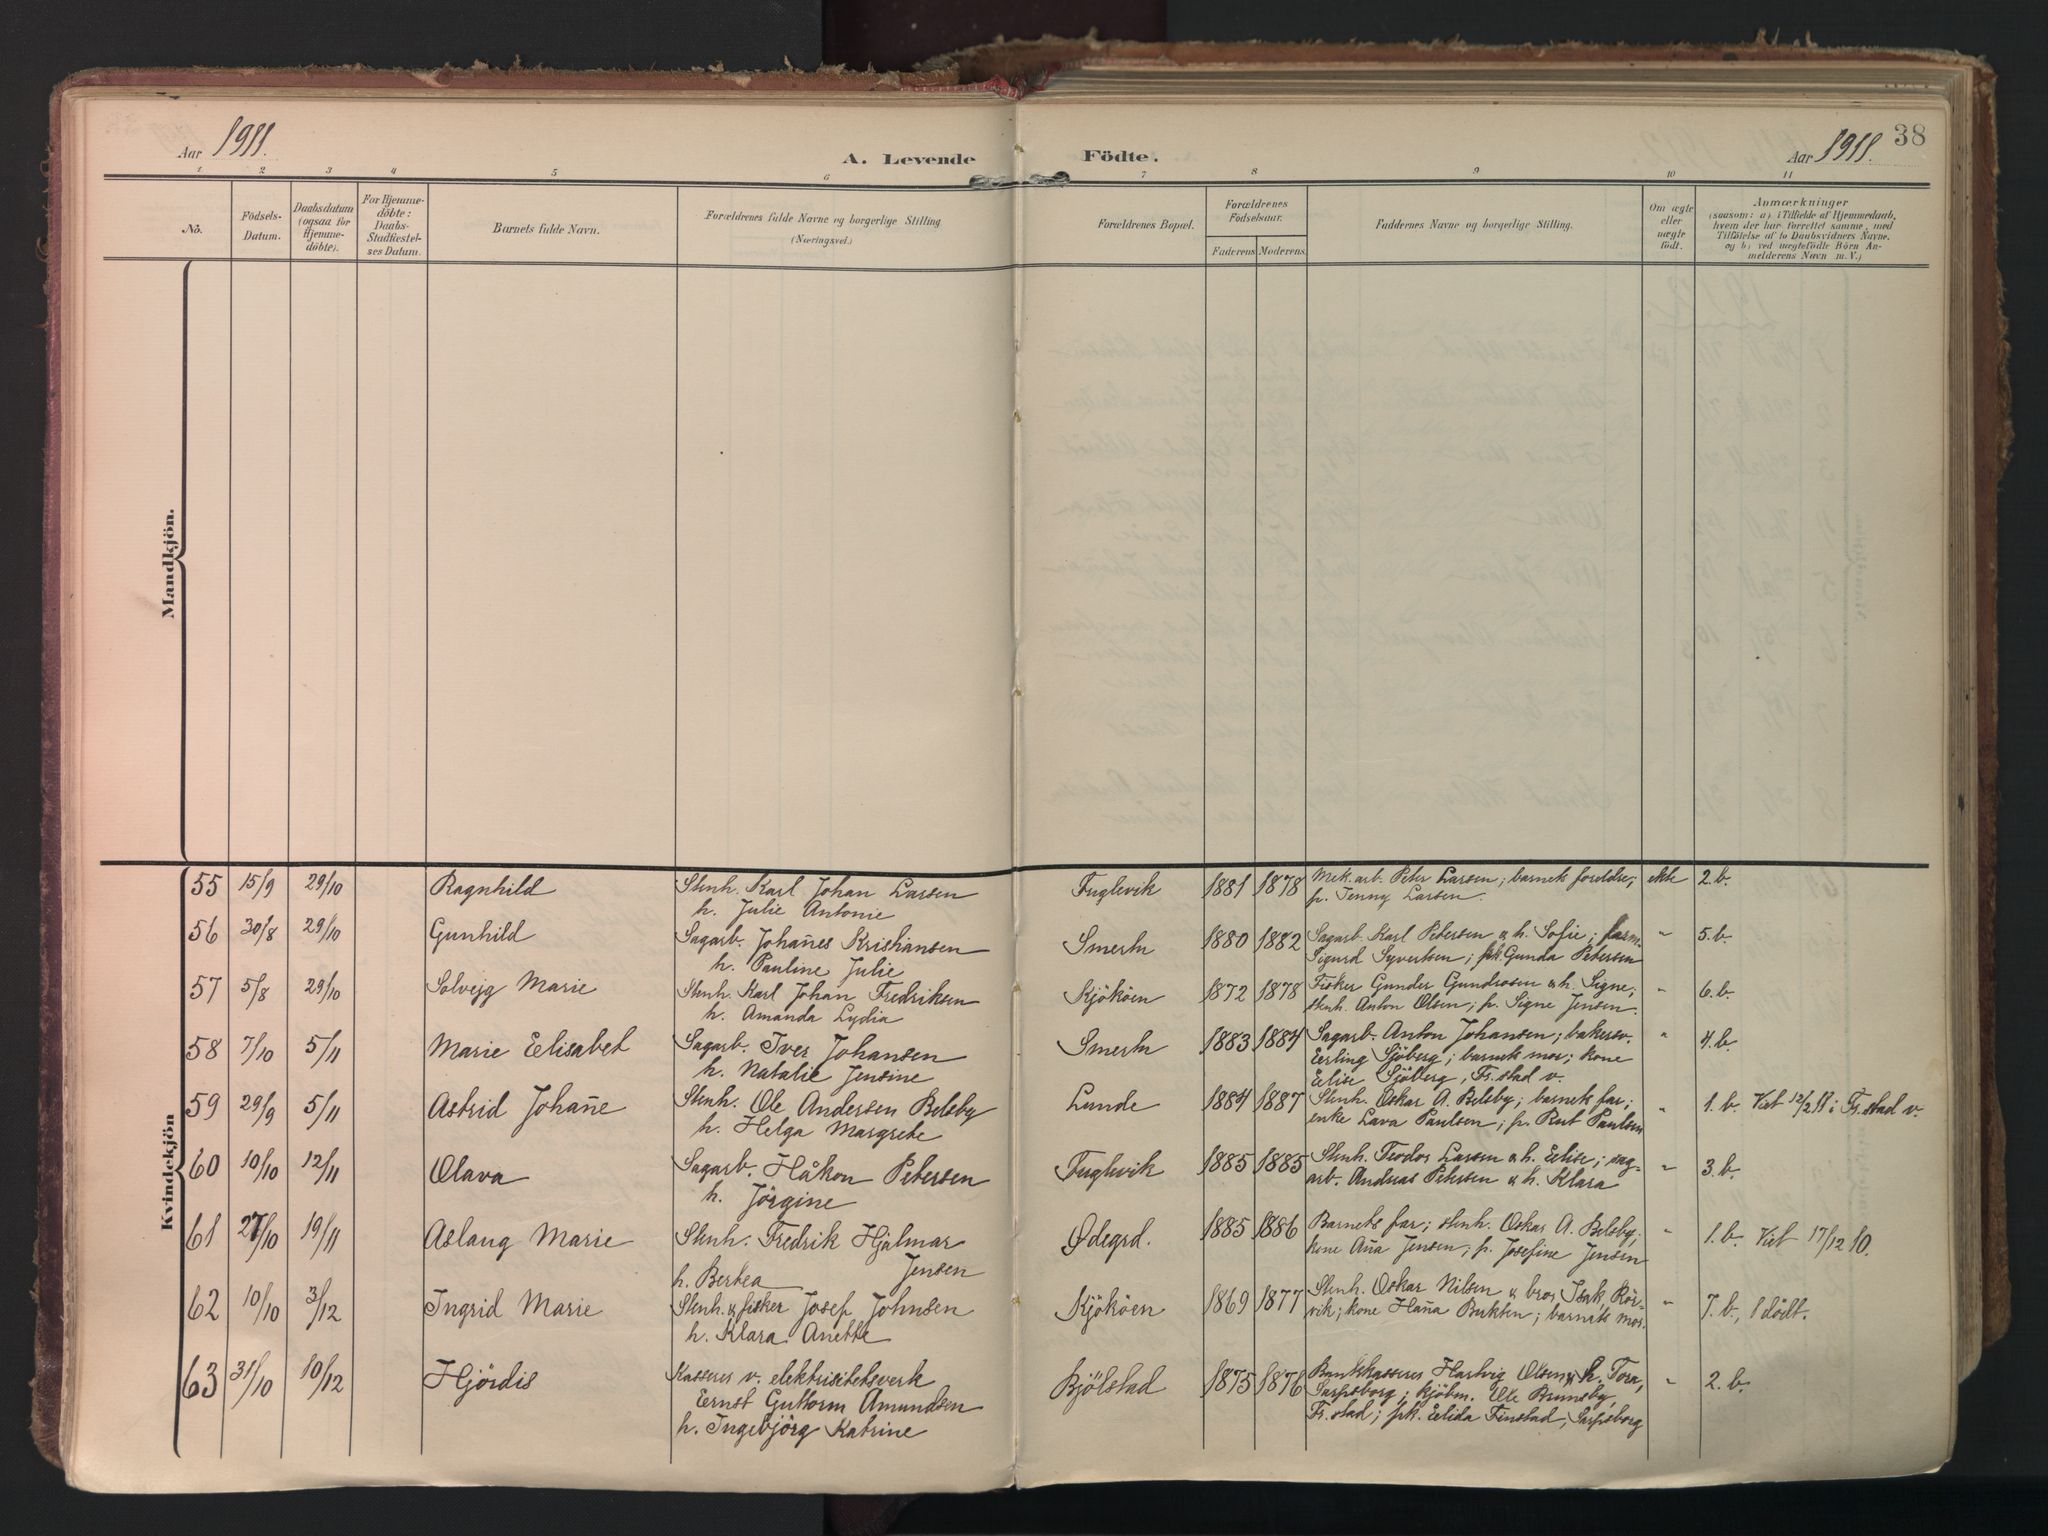 Aar 1911.
A. Levende Födte.
Aar 1911.
38
1 2 3 4 5 6 7 8 9 10 11
Nô.
Födsels-Datum.
Daabsdatum (ogsaa for Hjemmedöbte).
For Hjemmedöbte: Daabs-Stadfæstelses Datum.
Barnets fulde Navn.
Forældrenes fulde Navne og borgerlige Stilling.
(Næringsvei.)
Forældrenes Bopæl.
Forældrenes Födselsaar.
Faderens Moderens
Faddernes Navne og borgerlige Stilling.
Om ægte eller uægte födt.
Anmærkninger
(saasom: a) i Tilfælde af Hjemmedaab,
hvem der har forrettet samme, med
Tilföielse af to Daabsvidners Navne,
og b) ved uægtefödte Börn An-
melderens Navn m. V.)
Mandkjön.
Kvindekjön
55 15/9 29/10 Ragnhild Stenh. Karl Johan Larsen Fuglevik 1881 1878 Mek. arb. Peter Larsen; barnets foreldre; ekte 2. b.
h. Julie Antonie p. Jenny Larsen.
56 30/8 29/10 Gunhild Sagarb. Johañes Kristiansen Smertu 1880 1882 Sagarb. Karl Petersen & h. Sofie; farm. " 5. b.
h. Pauline Julie Sigurd Syvertsen; pk. Gunda Petersen
57 5/8 29/10 Solvejg Marie Stenh. Karl Johan Fredriksen Kjököen 1872 1878 Fisker Gunder Gundrosen & h. Signe; " 6. b.
h. Amanda Lydia stenh. Anton Olsen; p. Signe Jensen.
58 7/10 5/11 Marie Elisabet Sagarb. Iver Johansen Smertu 1883 1884 Sagarb. Anton Johansen; bakersv. " 4. b.
h. Natalie Jensine Erling Sjöberg; barnets mor; kone
Elise Sjöberg, Fr.stad v.
59 29/9 5/11 Astrid Johañe Stenh. Ole Andersen Belsby Lunde 1884 1887 Stenh. Oskar A. Belsby; barnets far; " 1. b. Viet 12/2 11 i Fr.stad v.
h. Helga Margrete enke Lava Paulsen; p. Rut Paulsen
60 10/10 12/11 Olava Sagarb. Håkon Petersen Fuglevik 1885 1885 Stenh. Teodor Larsen & h. Elise; sag- " 3. b.
h. Jörgine arb. Andreas Petersen & h. Klara
61 27/10 19/11 Aslaug Marie Stenh. Fredrik Hjalmar Ødegrd. 1885 1886 Barnets far; stenh. Oskar A. Belsby; " 1. b. Viet 17/12 10.
Jensen kone Aña Jensen; p. Josefine Jensen
h. Bertea
62 10/10 3/12 Ingrid Marie Stenh. & fisker Josef Johnsen Kjököen 1869 1877 Stenh. Oskar Nilsen & bror Isak Rör- " 7. b., 1 dödt.
h. Klara Anette vik; kone Haña Bukten; barnets mor.
63 31/10 10/12 Hjördis Kasserer v. elektrisitetsverk Bjölstad 1875 1876 Bankkasserer Hartvig Olsen & h. Tora, " 2. b.
Ernst Guttorm Amundsen Sarpsborg; kjöbm. Ole Brunsby,
h. Ingebjörg Katrine Fr.stad; pk. Elida Finstad, Sarpsborg